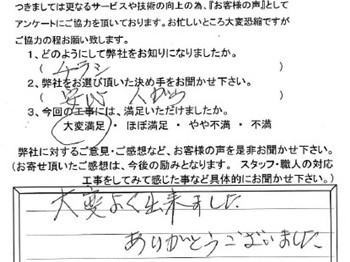 つきましては更なるサービスや技術の向上の為、『お客様の声』として
アンケートにご協力を頂いております。お忙しいところ大変恐縮ですが
ご協力の程お願い致します。
1、どのようにして弊社をお知りになりましたか。
( チラシ
2、弊社をお選び頂いた決め手をお聞かせ下さい。
( 安心 人がら
3、今回の工事には、満足いただけましたか。
大変満足・ほぼ満足・やや不満・不満
弊社に対するご意見・ご感想など、お客様の声を是非お聞かせ下さい。
(お寄せ頂いたご感想は、今後の励みとなります。 スタッフ・職人の対応
工事をしてみて感じた事など具体的にお聞かせ下さい。)
大変よく出来ました
ありがとうございました